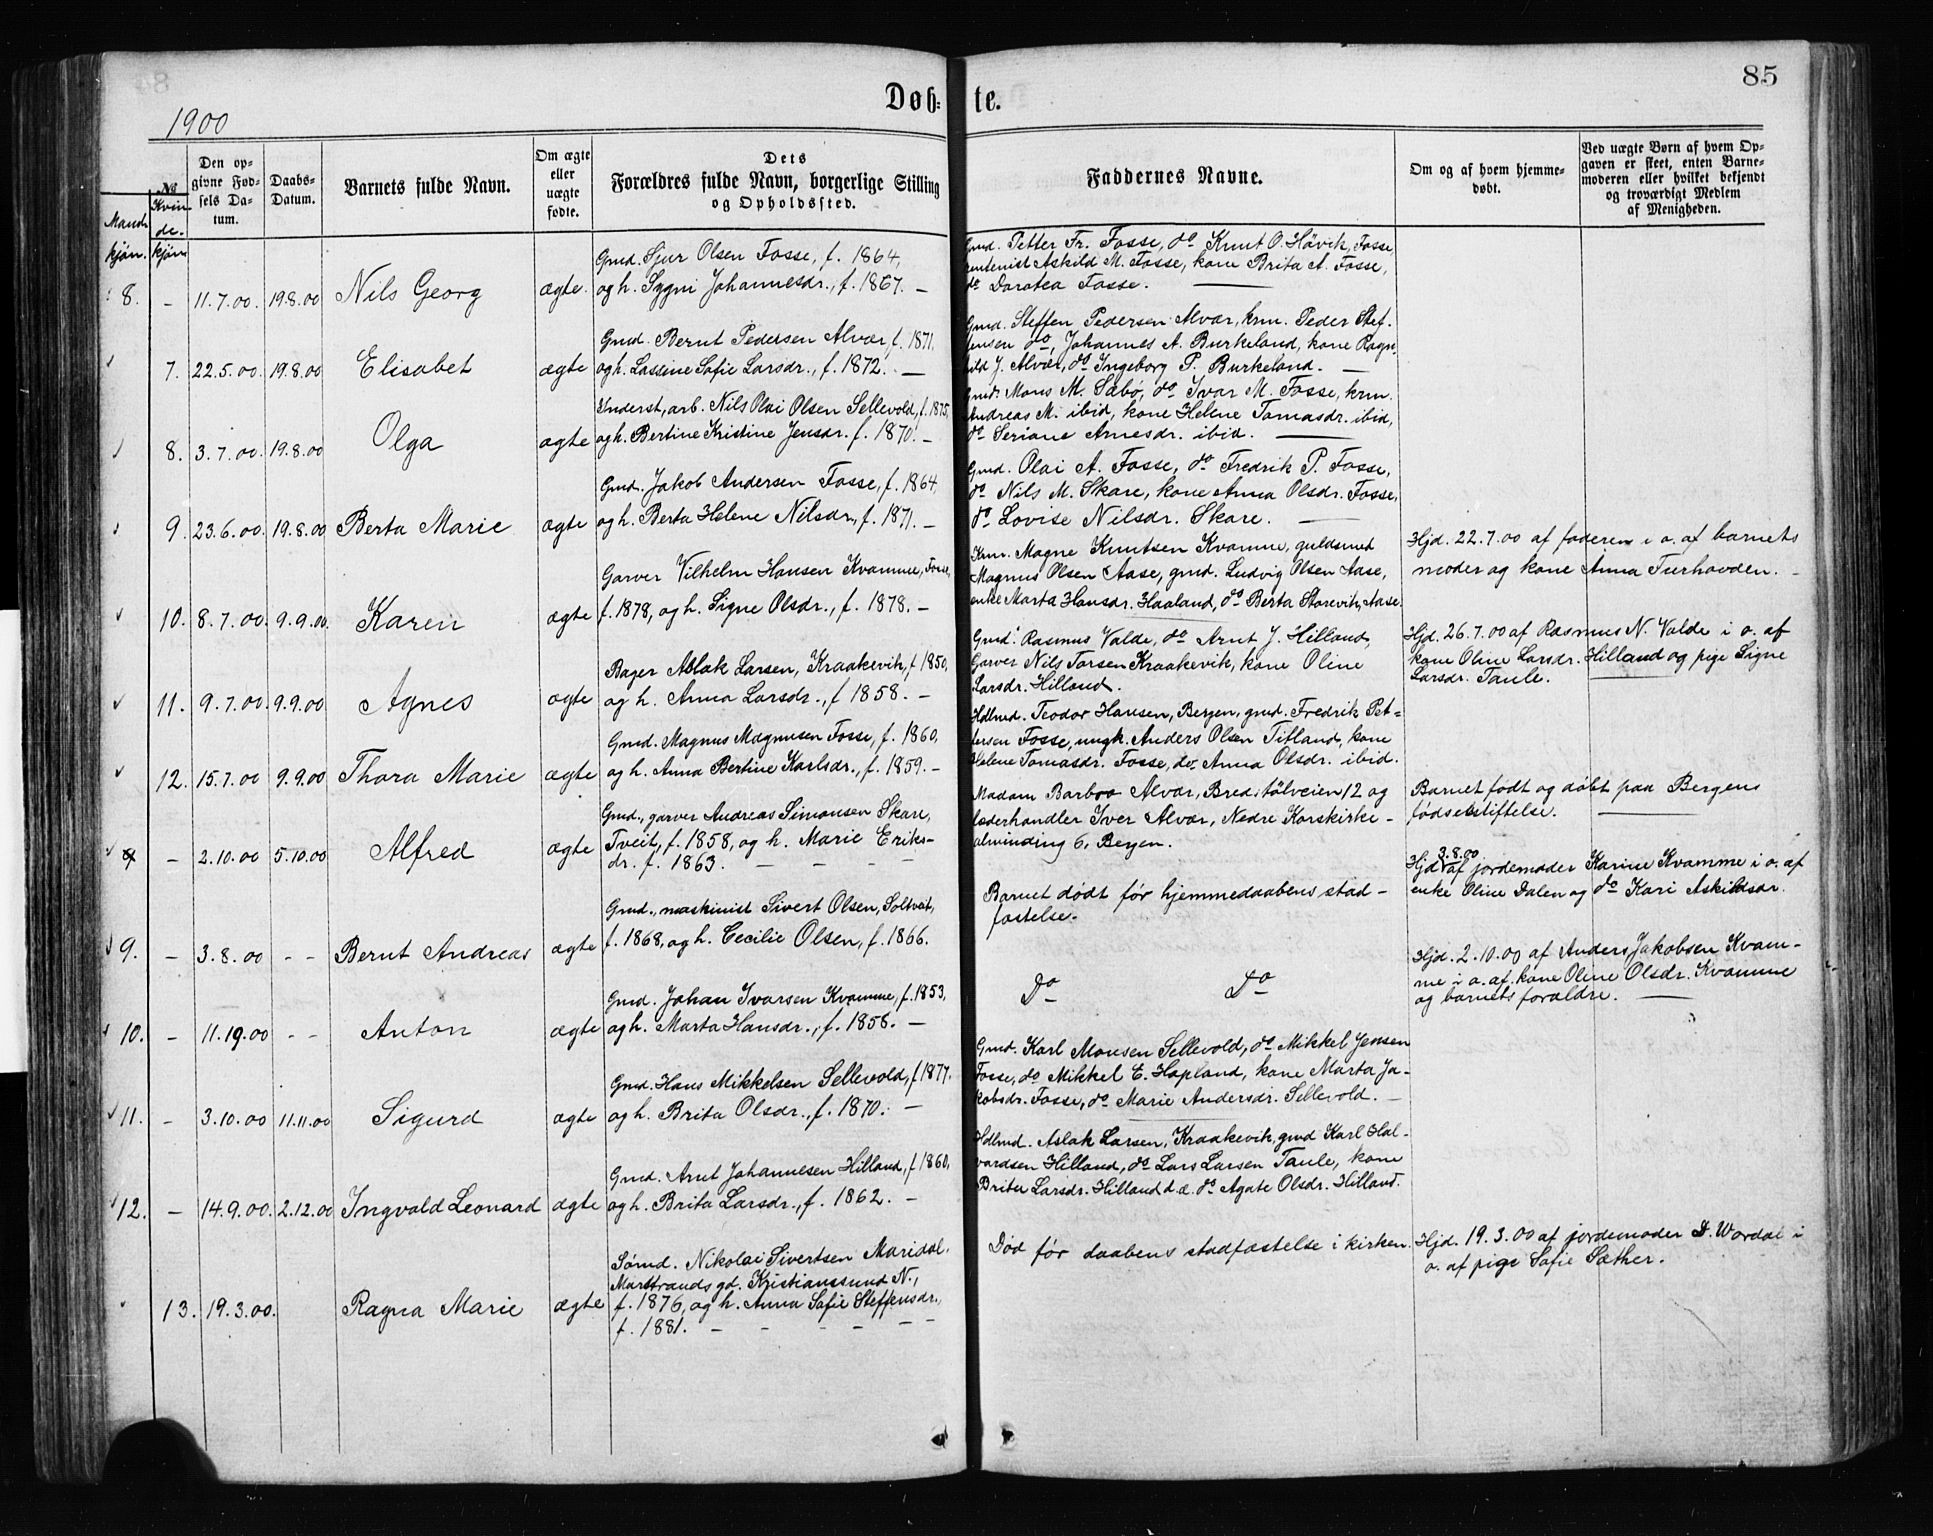 85
Døb- te.
1900
No
Mandkjøn.
Kvindekjøn
Den opgivne Fødsels Datum.
Daabs-Datum.
Barnets fulde Navn.
Om ægte eller uægte fødte.
Dets Forældres fulde Navn, borgerlige Stilling og Opholdssted.
Faddernes Navne.
Om og af hvem hjemmedøbt.
Ved uægte Børn af hvem Opgaven er skeet, enten Barnemoderen eller hvilket bekjendt og troværdigt Medlem af Menigheden.
8. - 11.7.00. 19.8.00 Nils Georg ægte.
Gmd. Sjur Olsen Fosse, f. 1864,
og h. Sygni Johannesdr., f. 1867. -
Gmd. Petter Fr. Fosse, do Knut O. Hövik, Fosse
Askild M. Fosse, kone Brita A. Fosse,
do Dorotea Fosse.
7. 22.5.00. 19.8.00 Elisabet ægte
Gmd. Bernt Pedersen Alvær, f. 1871,
og h. Lassine Sofie Larsdr., f. 1872. -
Gmd. Steffen Pedersen Alvær, krm. Peder Stef-
fensen do, Johannes A. Burkeland, kone Ragn-
hild J. Alvær, do Ingeborg P. Burkeland. -
8. 3.7.00. 19.8.00 Olga ægte
Inderst, arb. Nils Olai Olsen Sellevold, f. 1875,
og h. Bertine Kristine Jensdr. f. 1870. -
Gmd. Mons M. Sæbø, do Ivar M. Fosse, krm.
Andreas M. ibid, kone Helene Tomasdr. ibid,
do Seriane Arnesdr. ibid.
9. 23.6.00. 19.8.00 Berta Marie ægte
Gmd. Jakob Andersen Fosse, f. 1864,
og h. Berta Helene Nilsdr., f. 1871. -
Gmd. Olai A. Fosse, do Fredrik P. Fosse,
do Nils M. Skare, kone Anna Olsdr. Fosse,
do Lovise Nilsdr. Skare.
10. 8.7.00. 9.9.00. Karen ægte
Garver Vilhelm Hansen Kvamme, Fosse,
f. 1878, og h. Signe Olsdr., f. 1878. -
Krm. Magne Knutsen Kvamme, guldsmed
Magnus Olsen Aase, gmd. Ludvig Olsen Aase,
enke Marta Hansdr. Haaland, do Berta Storevik, Aase.
Hjd. 22.7.00 af faderen i o. af barnets
moder og kone Anna Turhovden. -
11. 9.7.00. 9.9.00 Agnes ægte
Bager Aslak Larsen, Kraakevik, f. 1850,
og h. Anna Larsdr., f. 1858. -
Gmd. Rasmus Valde, do Arnt J. Hilland,
Garver Nils Torsen Kraakevik, kone Oline
Larsdr. Hilland.
Hjd. 26.7.00 af Rasmus N. Valde i o. af
kone Oline Larsdr. Hilland og pige Signe
Larsdr. Taule.
12. 15.7.00 9.9.00 Thora Marie ægte
Gmd. Magnus Magnusen Fosse, f. 1860,
og h. Anna Bertine Karlsdr., f. 1859. -
Hdlmd. Teodor Hansen, Bergen, gmd. Fredrik Pet-
tersen Fosse, ungk. Anders Olsen Titland, kone
Helene Tomasdr. Fosse, do Anna Olsdr. ibid.
- 2.10.00 5.10.00 Alfred ægte
Gmd., garver Andreas Simonsen Skare,
Tveit, f. 1858, og h. Marie Eriks-
dr. f. 1863. - - -
Madam Barbro Alvær, Bredstölveien 12 og
læderhandler Iver Alvær, Nedre Korskirke-
alminding 6, Bergen.
Barnet født og døbt paa Bergens
fødselsstiftelse.
9. - 3.8.00 - - Bernt Andreas ægte
Gmd., maskinist Sivert Olsen, Soltveit,
f. 1868, og h. Cecilie Olsen, f. 1866.
Barnet dødt før hjemmedaabens stad-
fæstelse.
Hjd. 3.8.00 af jordemoder Karine Kvamme i o. af
enke Oline Dalen og do Kari Askildsdr.
10. - 11.19.00 - - Anton ægte
Gmd. Johan Ivarsen Kvamme, f. 1853,
og h. Marta Hansdr., f. 1856. -
Do Do
Hjd. 2.10.00 af Anders Jakobsen Kvam-
me i o. af kone Oline Olsdr. Kvamme
og barnets forældre.
11. - 3.10.00 11.11.00 Sigurd ægte
Gmd. Hans Mikkelsen Sellevold, f. 1877,
og h. Brita Olsdr., f. 1870. -
Gmd. Karl Monsen Sellevold, do Mikkel Jensen
Fosse, do Mikkel E. Hopland, kone Marta Ja-
kobsdr. Fosse, do Marie Andersdr. Sellevold. -
12. - 14.9.00. 2.12.00 Ingvald Leonard ægte
Gmd. Arnt Johannesen Hilland, f. 1860,
og h. Brita Larsdr., f. 1862. -
Hdlmd. Aslak Larsen, Kraakevik, gmd Karl Hal-
vardsen Hilland, do Lars Larsen Taule, kone
Brita Larsdr. Hilland d.æ. do Agate Olsdr. Hilland.
13. 19.3.00. Ragna Marie ægte
Sømd. Nikolai Sivertsen Maridal,
Marstrandsgd. Kristianssund N.,
f. 1876, og h. Anna Sofie Steffensdr.,
f. 1881. - - - - - -
Død før daabens stadfæstelse i kirken.
Hjd. 19.3.00 af jordemoder D. Wardal i
o. af pige Sofie Sæther.